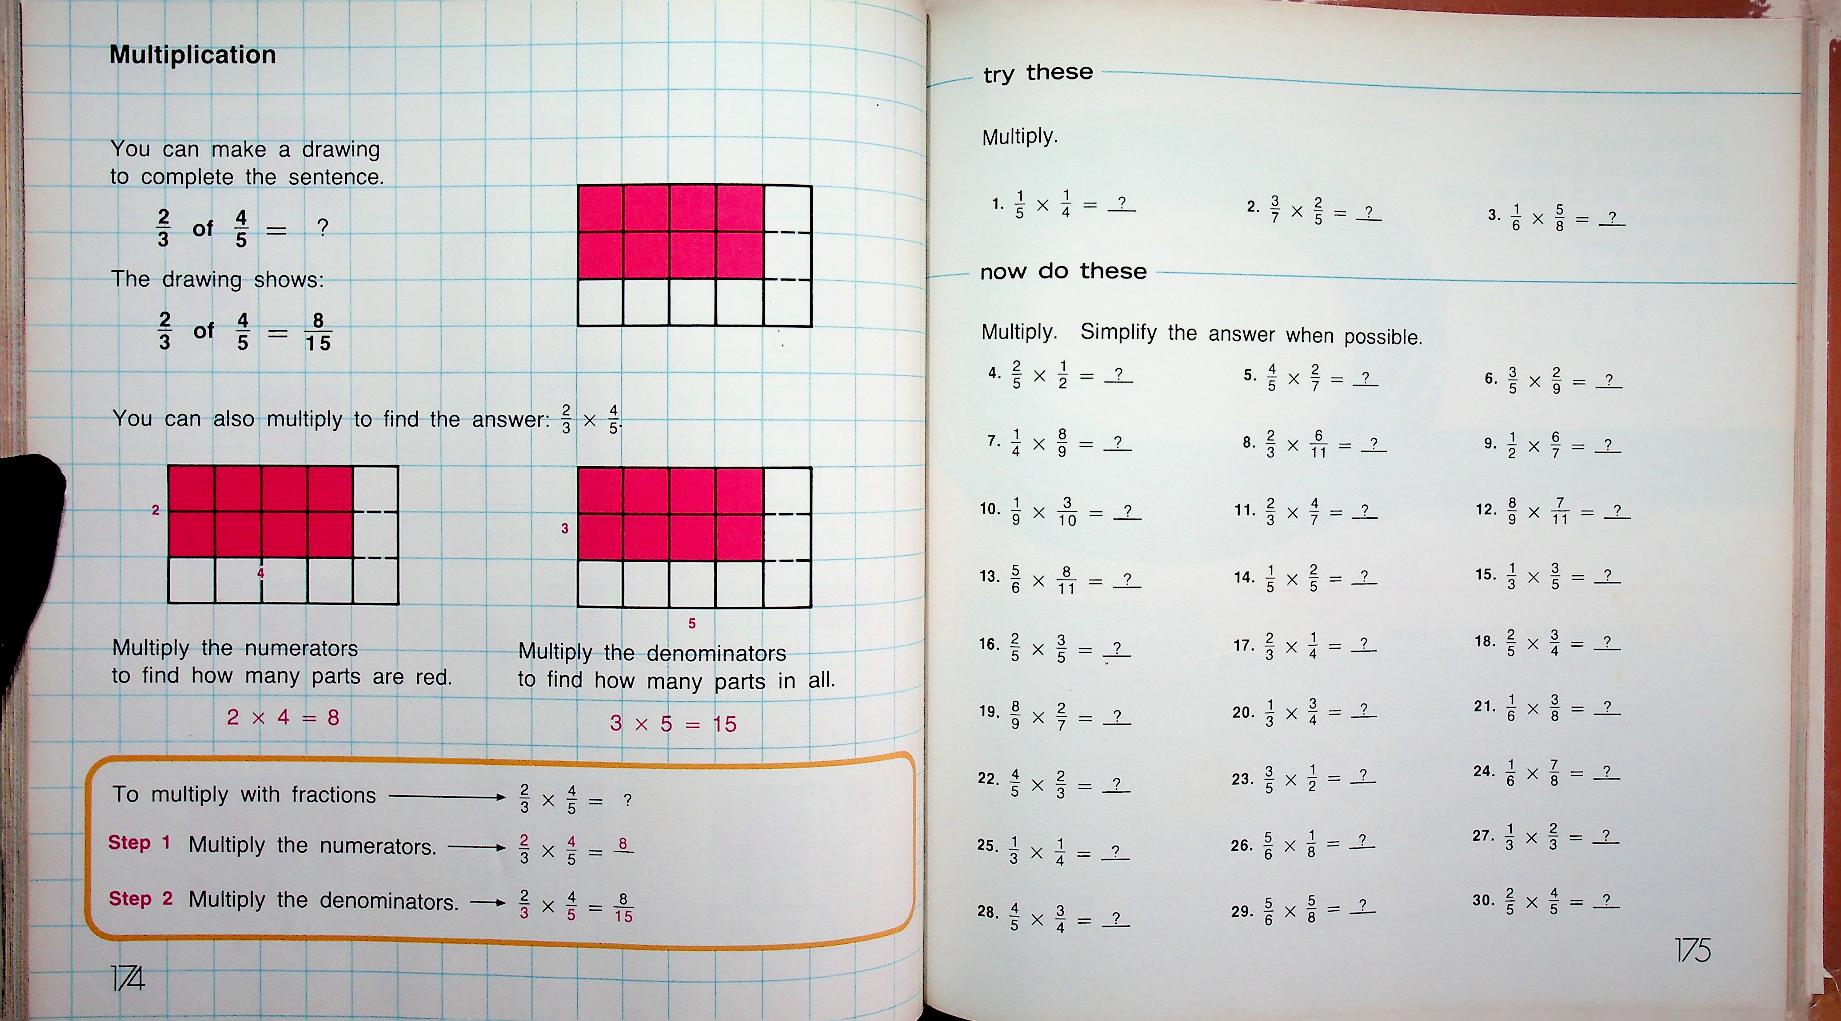 Multiplication
You can make a drawing
to complete the sentence.
2/3 of 4/5 = ?
The drawing shows:
2/3 of 4/5 = 8/15
You can also multiply to find the answer: 2/3 × 4/5.
2
4
3
5
Multiply the numerators
to find how many parts are red.
2 × 4 = 8
Multiply the denominators
to find how many parts in all.
3 × 5 = 15
To multiply with fractions 2/3 × 4/5 = ?
Step 1 Multiply the numerators. 2/3 × 4/5 = 8
Step 2 Multiply the denominators. 2/3 × 4/5 = 8/15
174
try these
Multiply.
1. 1/5 × 1/4 = ? 2. 3/7 × 2/5 = ? 3. 1/6 × 5/8 = ?
now do these
Multiply. Simplify the answer when possible.
4. 2/5 × 1/2 = ? 5. 4/5 × 2/7 = ? 6. 3/5 × 2/9 = ?
7. 1/4 × 8/9 = ? 8. 2/3 × 6/11 = ? 9. 1/2 × 6/7 = ?
10. 1/9 × 3/10 = ? 11. 2/3 × 4/7 = ? 12. 8/9 × 7/11 = ?
13. 5/6 × 8/11 = ? 14. 1/5 × 2/5 = ? 15. 1/3 × 3/5 = ?
16. 2/5 × 3/5 = ? 17. 2/3 × 1/4 = ? 18. 2/5 × 3/4 = ?
19. 8/9 × 2/7 = ? 20. 1/3 × 3/4 = ? 21. 1/6 × 3/8 = ?
22. 4/5 × 2/3 = ? 23. 3/5 × 1/2 = ? 24. 1/6 × 7/8 = ?
25. 1/3 × 1/4 = ? 26. 5/6 × 1/8 = ? 27. 1/3 × 2/3 = ?
28. 4/5 × 3/4 = ? 29. 5/6 × 5/8 = ? 30. 2/5 × 4/5 = ?
175